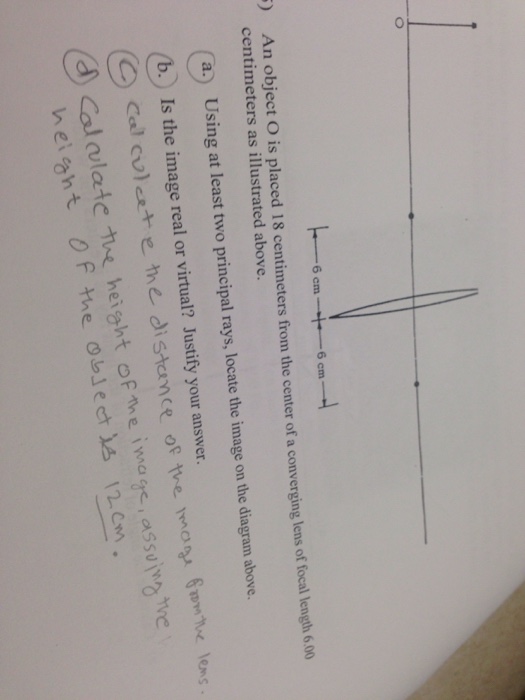 O
6 cm 6 cm
5) An object O is placed 18 centimeters from the center of a converging lens of focal length 6.00
centimeters as illustrated above.
a. Using at least two principal rays, locate the image on the diagram above.
b. Is the image real or virtual? Justify your answer.
c) calculate the distance of the image from the lens.
d) Calculate the height of the image, assuing the
height of the object is 12cm.